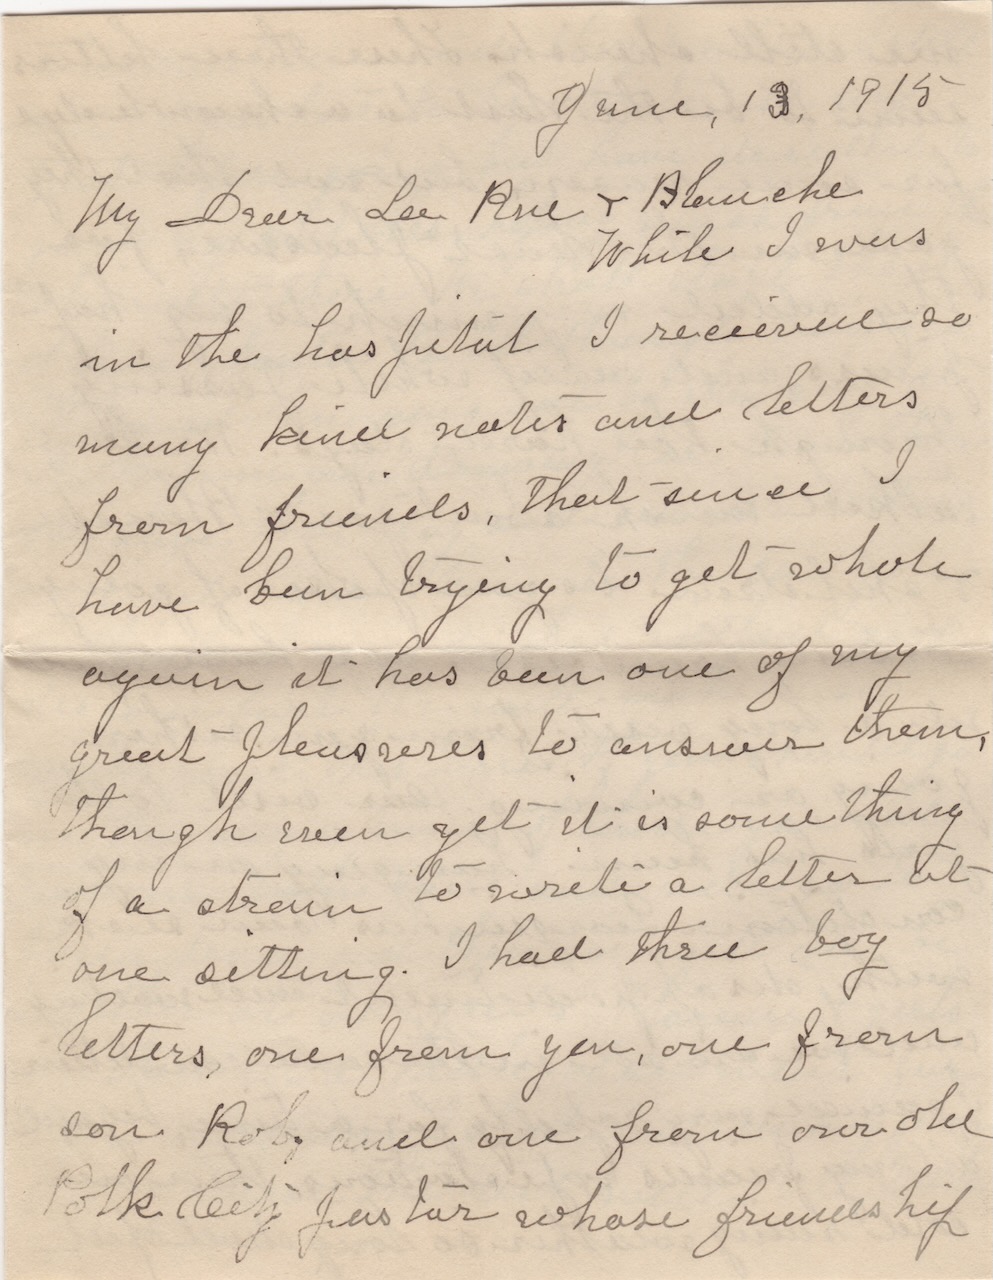 June, 13, 1915
My Dear La Rue & Blanche
While I was
in the hospital I received so
many kind notes and letters
from friends, that since I
have been trying to get whole
again it has been one of my
great pleasures to answer them,
though even yet it is something
of a strain to write a letter at
one sitting. I had three boy
letters, one from you, one from
son Rob, and one from our old
Polk City pastor whose friendship